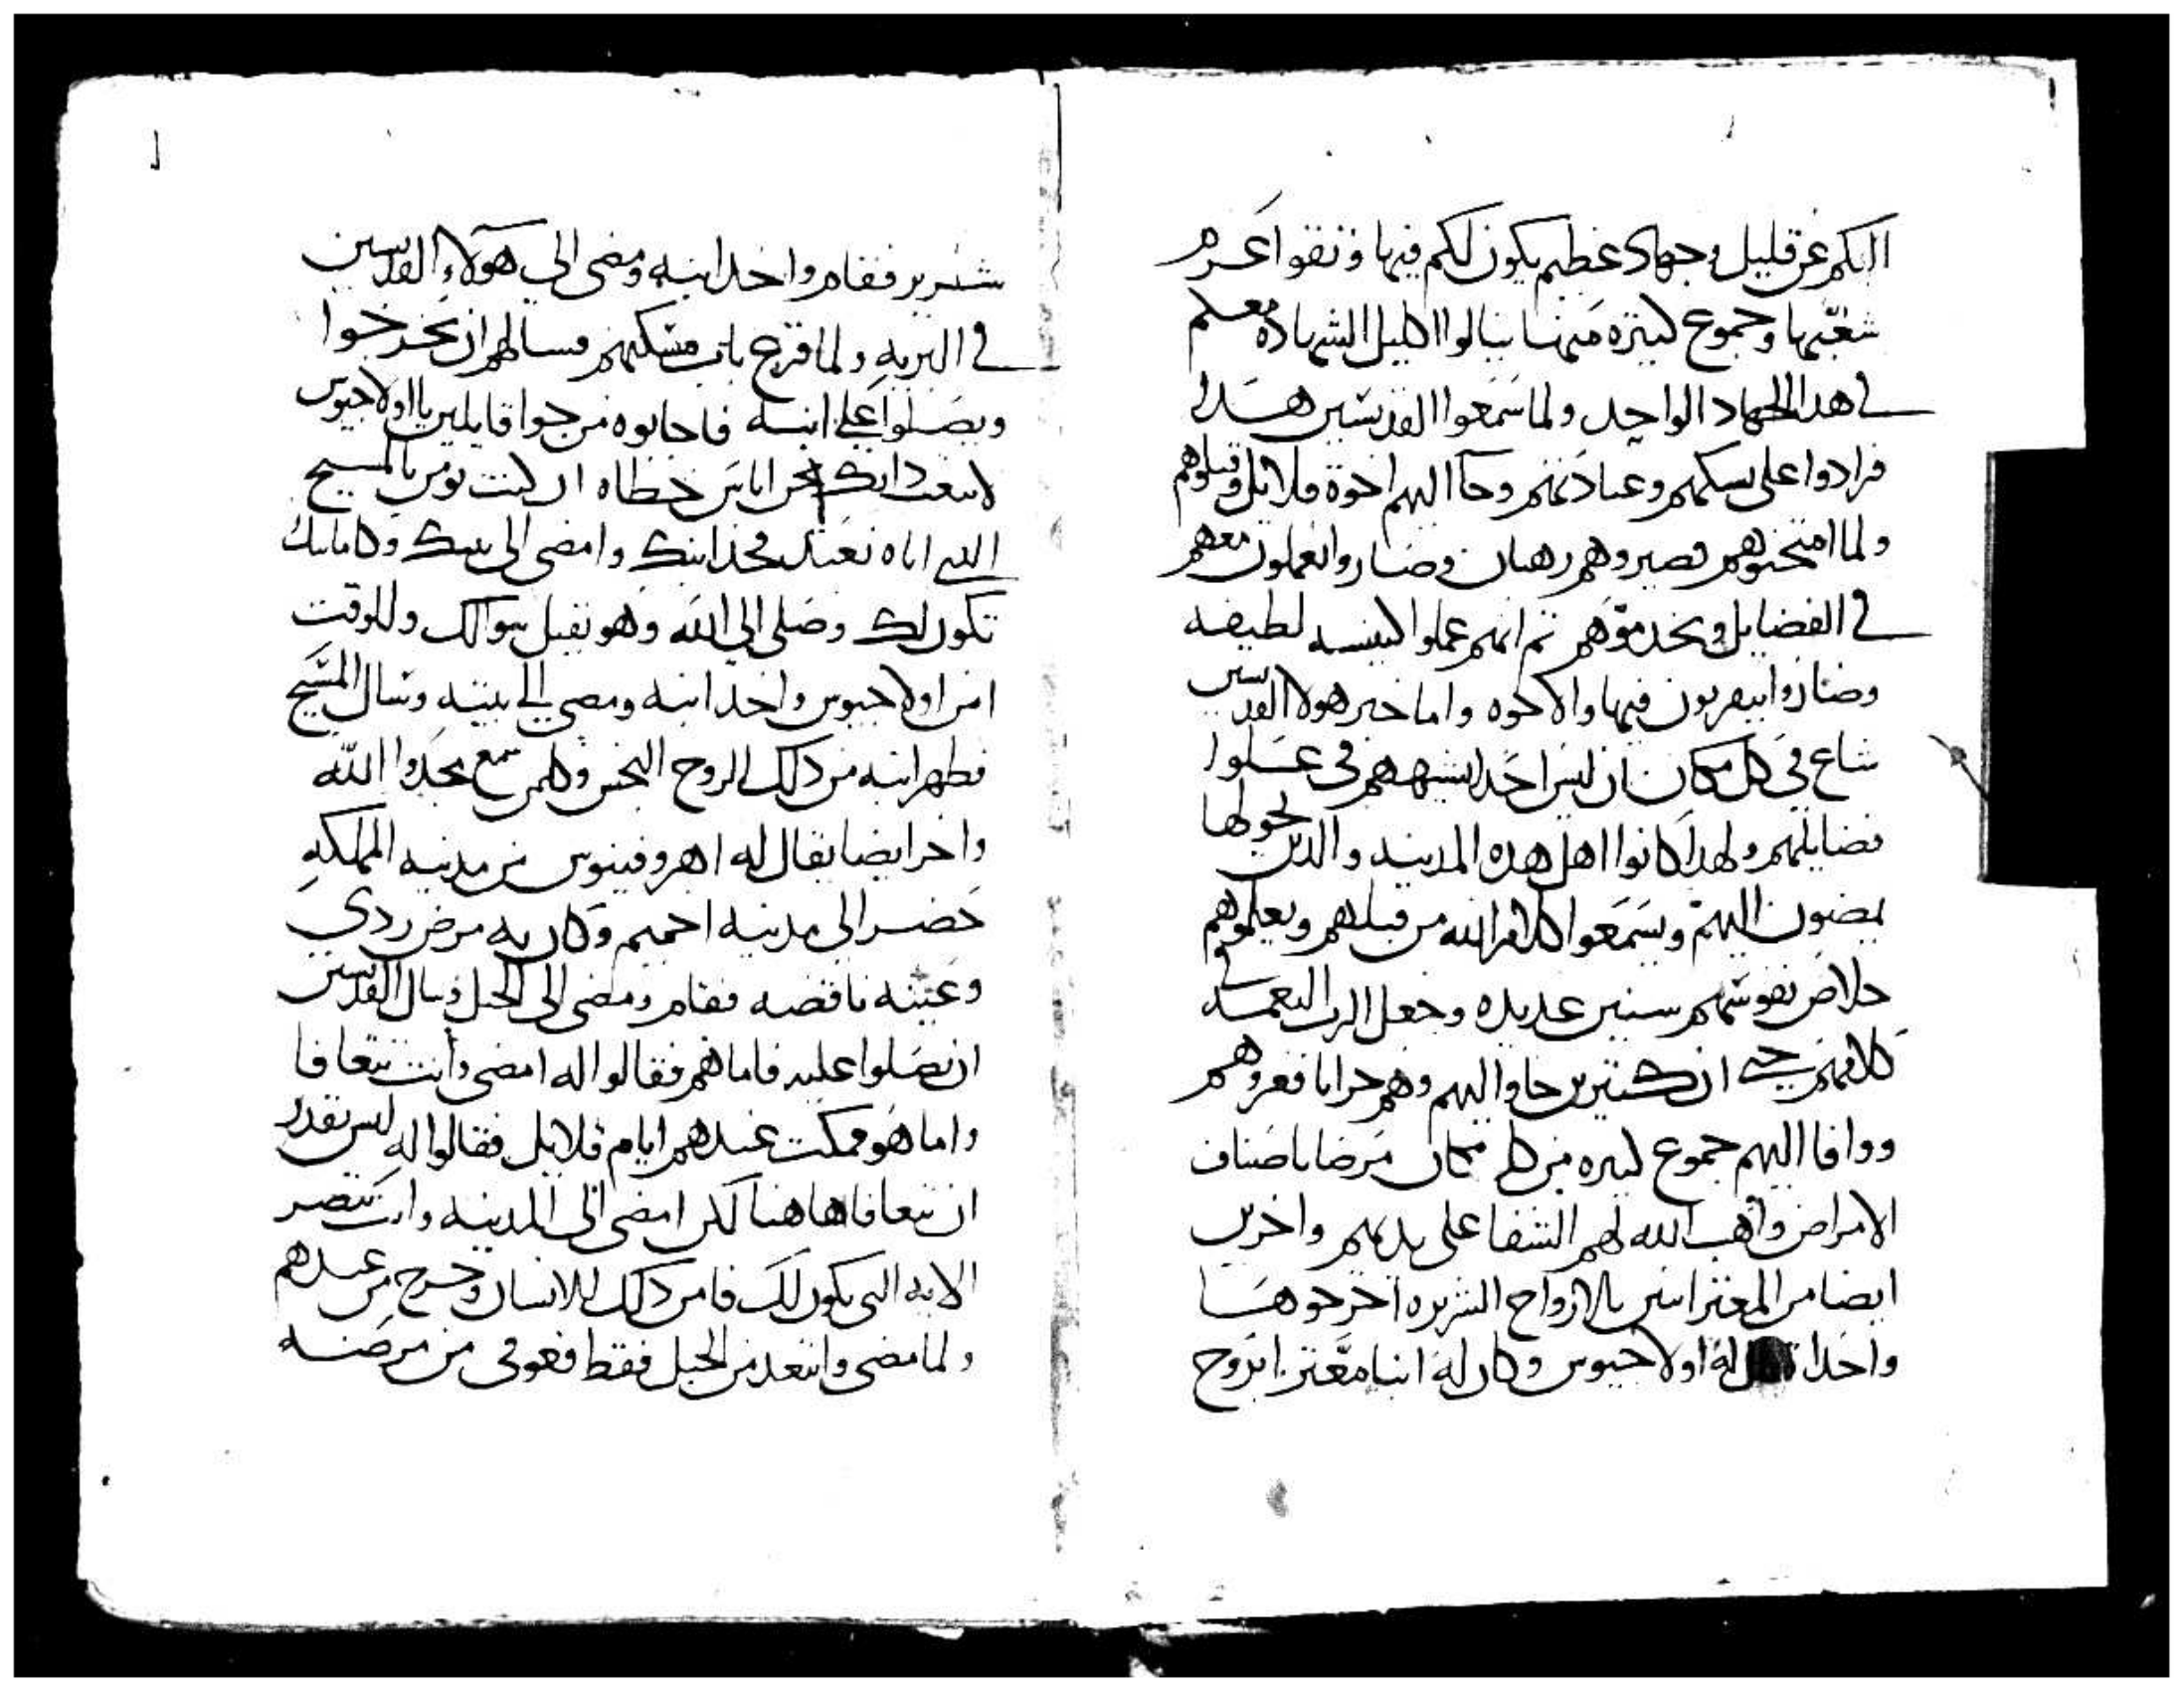 اليكم عن قليل وجهاد عظيم يكون لكم فيها وتقوا
شعبها وجموع كتيره منها ينالوا اكليل الشهاده معكم
في هدا الجهاد الواحد ولما سمعوا القديسين هدا
فزادوا على نسكهم وعبادتهم وجآ اليهم اخوة قلايل وقبلوهم
ولما امتحنوهم فصيروهم رهبان وصاروا يعملون معهم
في الفضايل ويخدموهم تم انهم عملوا كنيسه لطيفه
وصاروا يتقربون فيها والاخوه واما خبر هولا القديسين
شاع في كل مكان ان ليس احدا يشبههم في علوا
فضايلهم ولهدا كانوا اهل هده المدينه والدين حولها
يمضون اليهم ويسمعوا كلام الله من قبلهم ويعلموهم
خلاص نفوسهم سنين عديده وجعل الرب النعمه في
كلامهم حتي ان كتيرين جاوا اليهم وهم حزانا فعزوهم
ووافا اليهم جموع كتيره من كل مكان مرضا باصناف
الامراض واهب الله لهم الشفا على يديهم واخرين
ايضا من المعترايين بالارواح الشريره اخرجوها
واحدا له اولاجيوس وكان له ابنا معترا بروح
شرير فقام واخد ابنه ومضى الى هولاء القديسين
في البريه ولما قرع باب مسكنهم فسالهم ان يخرجوا
ويصلوا على ابنه فاجابوه من جوا قايلين يا اولاجيوس
لا تتعب داتك نحن اناس خطاه ان كنت تومن بالمسيح
الدي اياه نعبد فخد ابنك وامضى الى بيتك وكامانتك
تكون لك وصلى الى الله وهو يقبل سوالك وللوقت
امن اولاجيوس واخد ابنه ومضى الى بيته وسال المسيح
فطهر ابنه من دلك الروح النجس وكلمن سمع مجدوا الله
واخر ايضا يقال له اهروفينوس من مدينه المملكه
حضر الى مدينه اخميم وكان به مرض ردي
وعينه ناقصه فقام ومضى الى الجبل وسال القديسين
ان يصلوا عليه فاما هم فقالوا له امضى وانت تتعافا
واما هو فمكت عندهم ايام قلايل فقالوا له ليس تقدر
ان تتعافا هاهنا لكن امضى الى المدينه وانت تنتصر
الايه التى يكون لك فامن دلك الانسان وخرج من عندهم
ولما مضى وابتعد من الجبل فقط فعوفى من مرضه